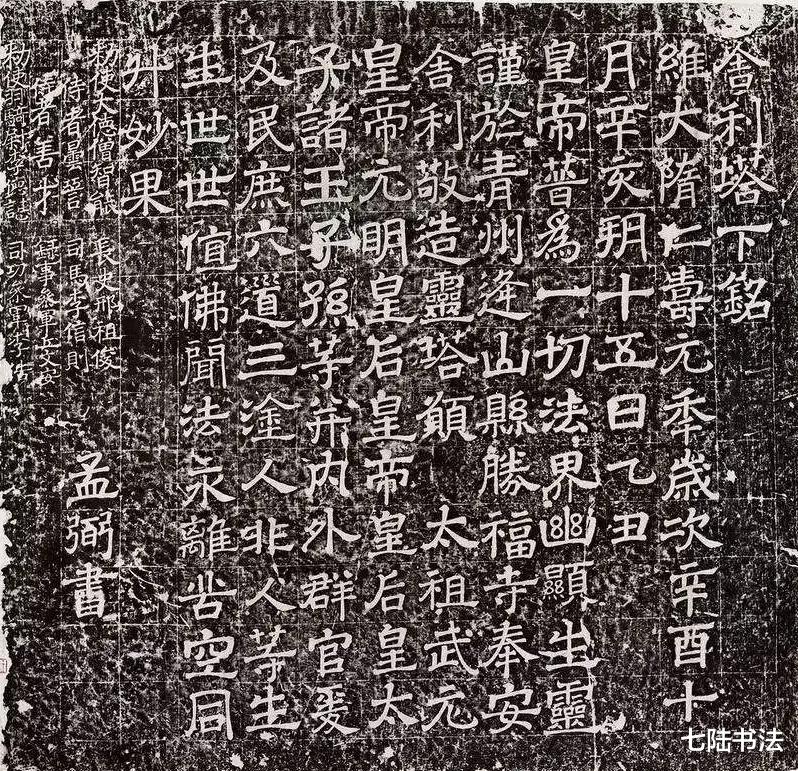 舍利塔下銘
維大隋仁壽元秊歲次辛酉十
月辛亥朔十五日乙丑
皇帝普爲一切法界幽顯生靈
謹於青州逄山縣勝福寺奉安
舍利敬造靈塔願 太祖武元
皇帝元明皇后皇帝皇后皇太
子諸王子孫等并内外群官爰
及民庶六道三塗人非人等生
生世世值佛聞法永離苦空同
升妙果
勑使大德僧智能 長史邢祖俊
侍者曇 司馬李信則 孟弼書
侍者善才 錄事參軍丘文安
勑使羽騎尉李 司功參軍李佶
七陆书法